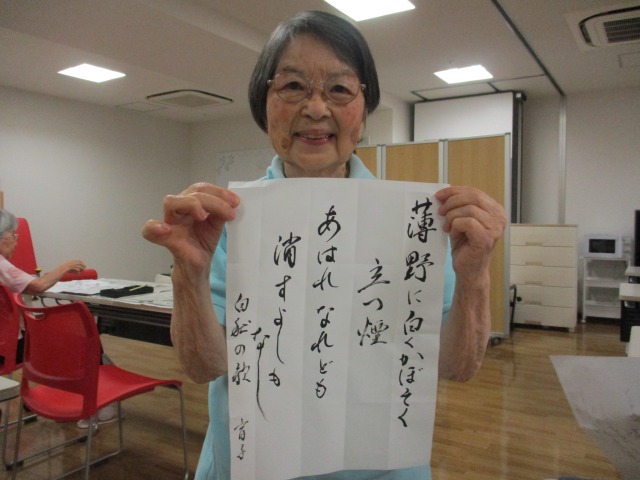 薄野に白くかぼそく
立つ煙
あはれなれども
消すよしも
なし
白秋の歌